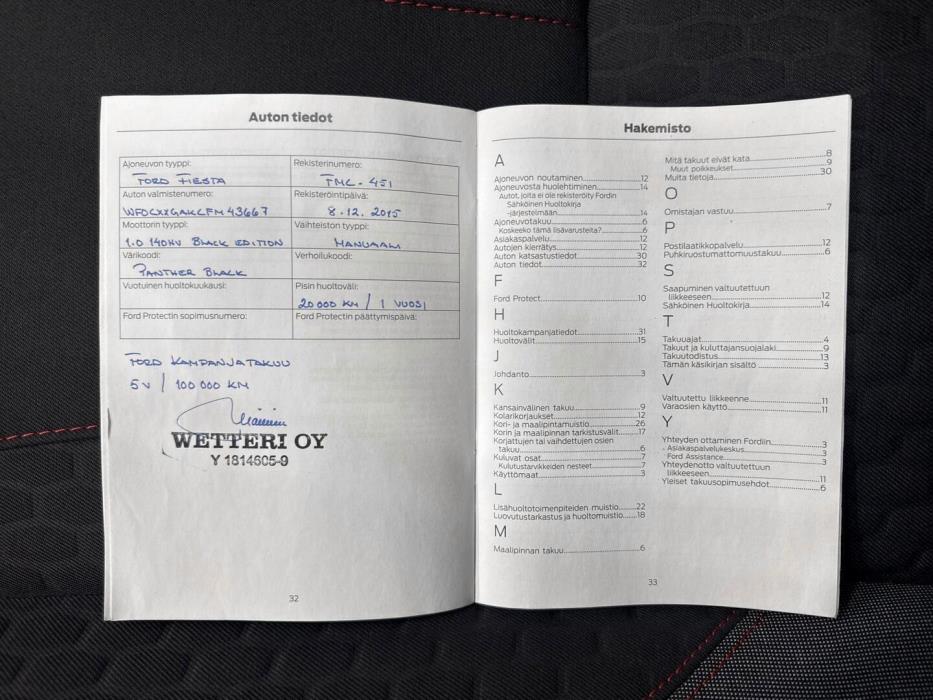 Auton tiedot
Ajoneuvon tyyppi:
FORD FIESTA
Rekisterinumero:
FMC-451
Auton valmistenumero:
WF0CXXGAKCFM43667
Rekisteröintipäivä:
8.12.2015
Moottorin tyyppi:
1.0 140HV BLACK EDITION
Vaihteiston tyyppi:
MANUAALI
Värikoodi:
PANTHER BLACK
Verhoilukoodi:
Vuotuinen huoltokuukausi:
Pisin huoltoväli:
20 000 KM / 1 VUOSI
Ford Protectin sopimusnumero:
Ford Protectin päättymispäivä:
FORD KAMPANJATAKUU
5V / 100 000 KM
WETTERI OY
Y 1814605-9
32
Hakemisto
A
Ajoneuvon noutaminen 12
Ajoneuvosta huolehtiminen 14
Autot, joita ei ole rekisteröity Fordin
Sähköinen Huoltokirja
-järjestelmään 14
Ajoneuvotakuu 6
Koskeeko tämä lisävarusteita? 6
Asiakaspalvelu 12
Autojen kierrätys 12
Auton katsastustiedot 30
Auton tiedot 32
F
Ford Protect 10
H
Huoltokampanjatiedot 31
Huoltovälit 15
J
Johdanto 3
K
Kansainvälinen takuu 9
Kolarikorjaukset 12
Kori- ja maalipintamuistio 26
Korin ja maalipinnan tarkistusvälit 17
Korjattujen tai vaihdettujen osien
takuu 6
Kuluvat osat 7
Kulutustarvikkeiden nesteet 7
Käyttömaat 3
L
Lisähuoltotoimenpiteiden muistio 22
Luovutustarkastus ja huoltomuistio 18
M
Maalipinnan takuu 6
Mitä takuut eivät kata 8
Muut poikkeukset 9
Muita tietoja 30
O
Omistajan vastuu 7
P
Postilaatikkopalvelu 12
Puhkiruostumattomuustakuu 6
S
Saapuminen valtuutettuun
liikkeeseen 12
Sähköinen Huoltokirja 14
T
Takuuajat 4
Takuut ja kuluttajansuojalaki 9
Takuutodistus 13
Tämän käsikirjan sisältö 3
V
Valtuutettu liikkeenne 11
Varaosien käyttö 11
Y
Yhteyden ottaminen Fordiin 3
Asiakaspalvelukeskus 3
Ford Assistance 3
Yhteydenotto valtuutettuun
liikkeeseen 11
Yleiset takuusopimusehdot 6
33